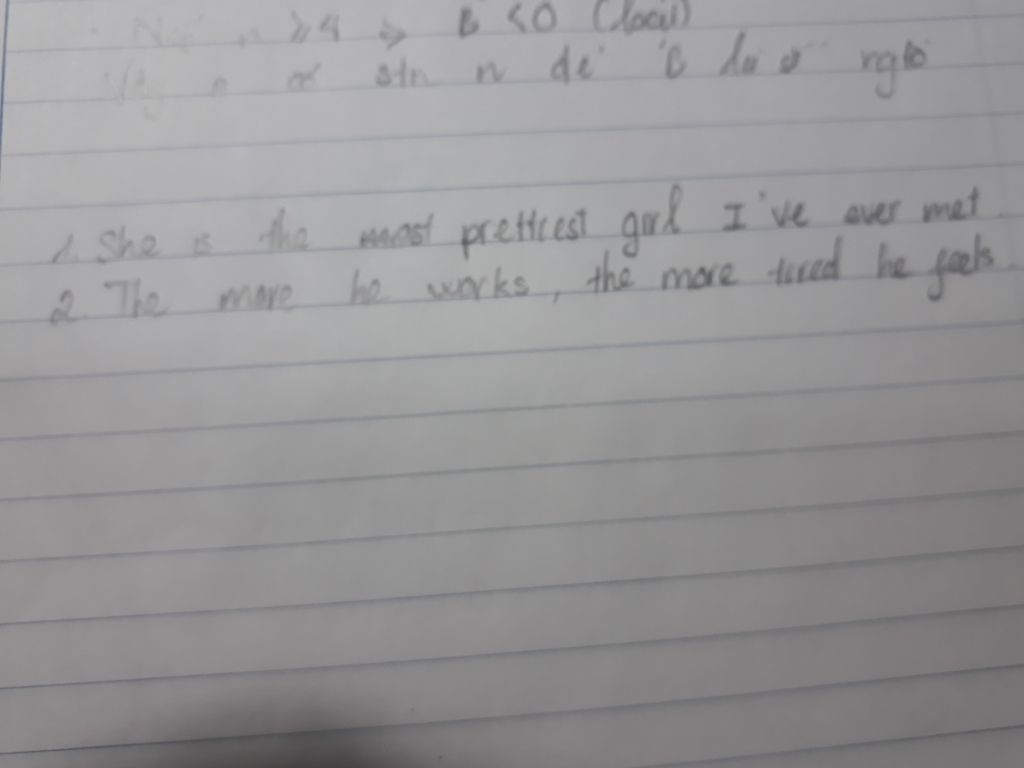 n ≥ 4 => B < 0 (loại)
n
1. She is the most prettiest girl I've ever met.
2. The more he works, the more tired he feels.